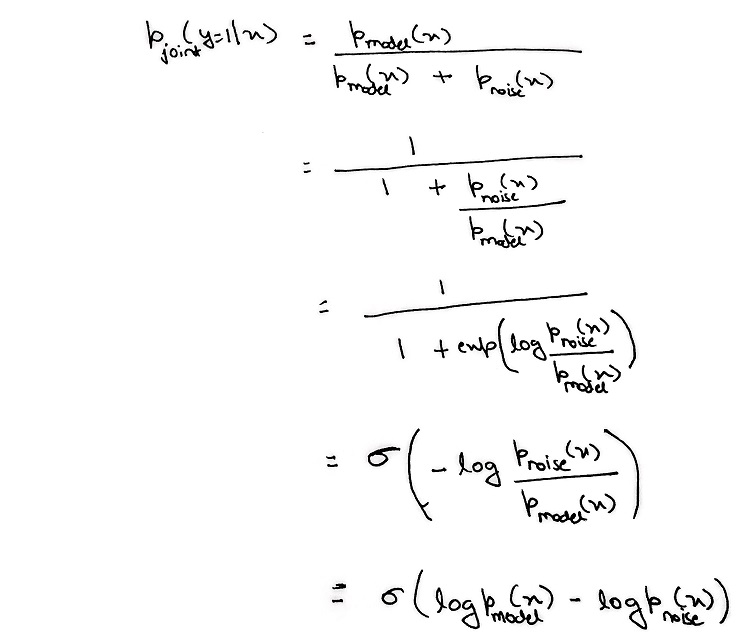 p_joint(y=1|x) = p_model(x) / (p_model(x) + p_noise(x))
= 1 / (1 + p_noise(x) / p_model(x))
= 1 / (1 + exp(log p_noise(x) / p_model(x)))
= σ(- log p_noise(x) / p_model(x))
= σ(log p_model(x) - log p_noise(x))